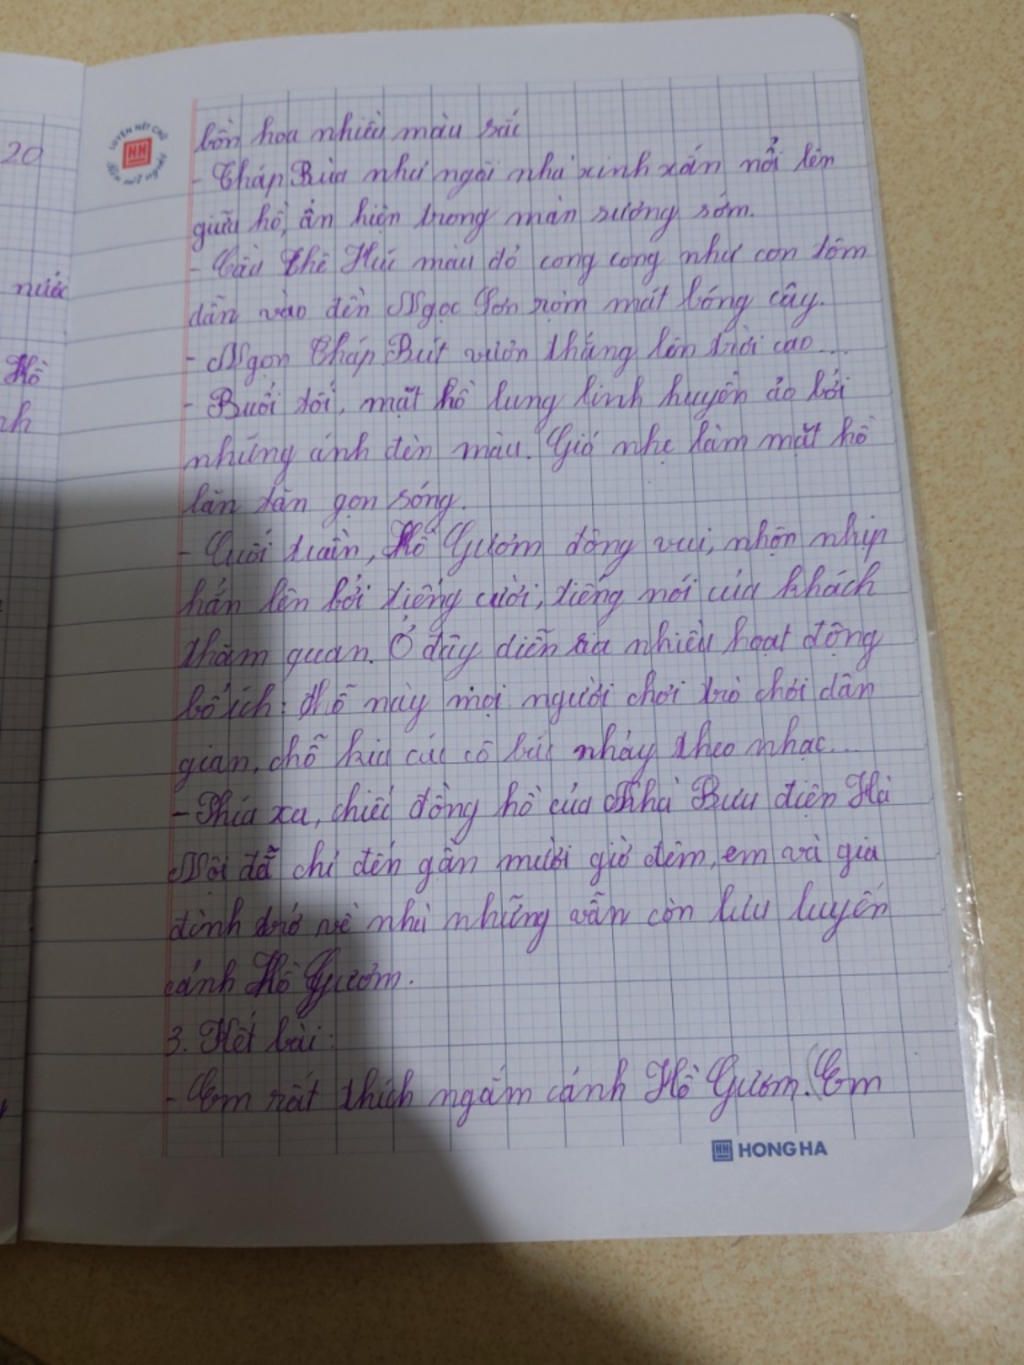 20
nước
Hồ
nh
LUYỆN NÉT CHỮ
HH
RÈN NẾT NGƯỜI
bồn hoa nhiều màu sắc
- Tháp Rùa như ngôi nhà xinh xắn nổi lên
giữa hồ, ẩn hiện trong màn sương sớm.
- Cầu Thê Húc màu đỏ cong cong như con tôm
dẫn vào đền Ngọc Sơn rợm mát bóng cây.
- Ngọn Tháp Bút vươn thẳng lên trời cao...
- Buổi tối, mặt hồ lung linh huyền ảo bởi
những ánh đèn màu. Gió nhẹ làm mặt hồ
lăn tăn gợn sóng.
- Cuối tuần, Hồ Gươm đông vui, nhộn nhịp
hẳn lên bởi tiếng cười, tiếng nói của khách
thăm quan. Ở đây diễn ra nhiều hoạt động
bổ ích: chỗ này mọi người chơi trò chơi dân
gian, chỗ kia các cô bác nhảy theo nhạc...
- Phía xa, chiếc đồng hồ của Nhà Bưu điện Hà
Nội đã chỉ đến gần mười giờ đêm, em và gia
đình trở về nhà những vẫn còn lưu luyến
cảnh Hồ Gươm.
3. Kết bài:
- Em rất thích ngắm cảnh Hồ Gươm. (Em
HH HONG HA